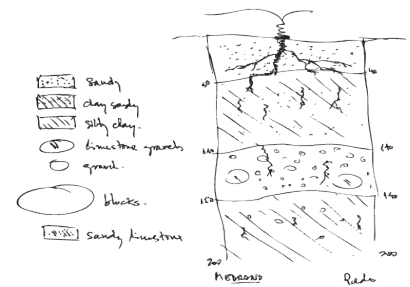 sandy
clay sandy
silty clay.
limestone gravels
gravel.
blocks.
sandy limestone
40
110
110
150
200
200
MEDRANO